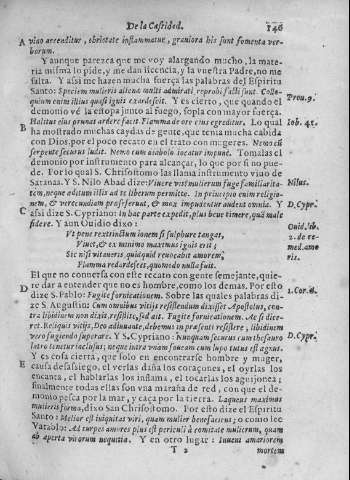 De la Castidad. 146
A vino accenditur, ebrietate inflammatur, graviora his sunt fomenta ver-
borum.
Y aunque parezca que me voy alargando mucho, la mate-
ria misma lo pide, y me dan licencia, y la vuestra Padre, no me
falta. Y assi me hazen mucha fuerça las palabras del Espiritu
Santo: Speciem mulieris alienæ multi admirati, reprobi facti sunt. Collo-
quium enim illius quasi ignis exardescit. Y es cierto, que quando el
Prou. 9.
demonio vè la estopa junto al fuego, sopla con mayor fuerça.
Halitus eius prunas ardere facit. Flamma de ore eius egreditur. Lo qual
Iob. 41.
B ha mostrado muchas caydas de gente, que tenia mucha cabida
con Dios, por el poco recato en el trato con mugeres. Nemo cũ
serpente securus ludit. Nemo cum diabolo iocatur impunè. Tomalas el
demonio por instrumento para alcançar, lo que por si no pue-
de. Por lo qual S. Chrisostomo las llama instrumento vivo de
Satanas. Y S. Nilo Abad dize: Vivere vult mulierum fuge familiarita-
tem, neque aditum illis ad te liberum permitte. In principio enim religio-
Nilus.
nem, & verecundiam proferunt, & mox impudenter audent omnia. Y
D. Cypr.
C assi dize S. Cypriano: In hac parte expedit, plus bene timere, quã male
fidere. Y aun Ouidio dixo:
Ut pene extinctum ionem si sulphure tangat,
Vivet, & ex minimo maximus ignis erit;
Sic nisi vitaveris, quidquid revocabit amorem,
Flamma redardescet, quæ modo nulla fuit.
Ouid. lib.
2. de re-
med. amo
ris.
El que no conversa con este recato con gente semejante, quie-
D re dar a entender que no es hombre, como los demas. Por esto
dize S. Pablo: Fugite fornicationem. Sobre las quales palabras di-
1. Cor. 6.
ze S. Augustin: Cum omnibus vitijs resistendum dixisset Apostolus, con-
tra libidinem non dixit, resistite, sed ait. Fugite fornicationem. Ac si dice-
ret. Reliquis vitijs, Deo adiuvante, debemus in præsenti resistere, libidinem
vero fugiendo superare. Y S. Cypriano: Nunquam securus cum thesauro
D. Cypr.
latro tenetur inclusus; neque intra unam caveam cum lupo tutus est agnus.
Y es cosa cierta, que solo en encontrarse hombre y muger,
E causa desasosiego, el verlas daña los coraçones, el oyrlas los
encanta, el hablarlas los inflama, el tocarlas los aguijonea;
finalmente todas ellas son una maraña de red, con que el de-
monio pesca por la mar, y caça por la tierra. Laqueus maximus
mulieris forma, dixo San Chrisostomo. Por esto dize el Espiritu
Santo: Melior est iniquitas viri, quam mulier benefaciens; o como lee
Vatablo: Ad turpes amores plus est periculi à comitate mulierum, quam
ab aperta virorum nequitia. Y en otro lugar: Inveni amariorem
T 2 mortem